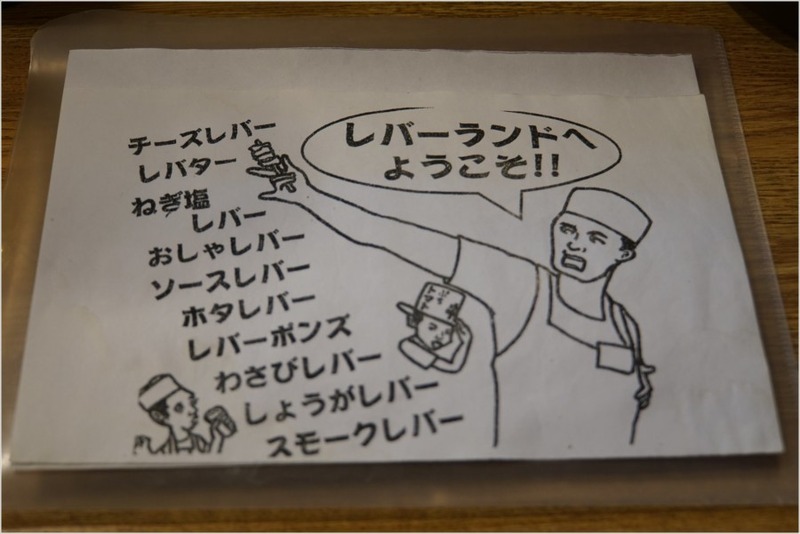 レバーランドへ
ようこそ!!
チーズレバー
レバター
ねぎ塩
レバー
おしゃレバー
ソースレバー
ホタレバー
レバーポンズ
わさびレバー
しょうがレバー
スモークレバー
トマト